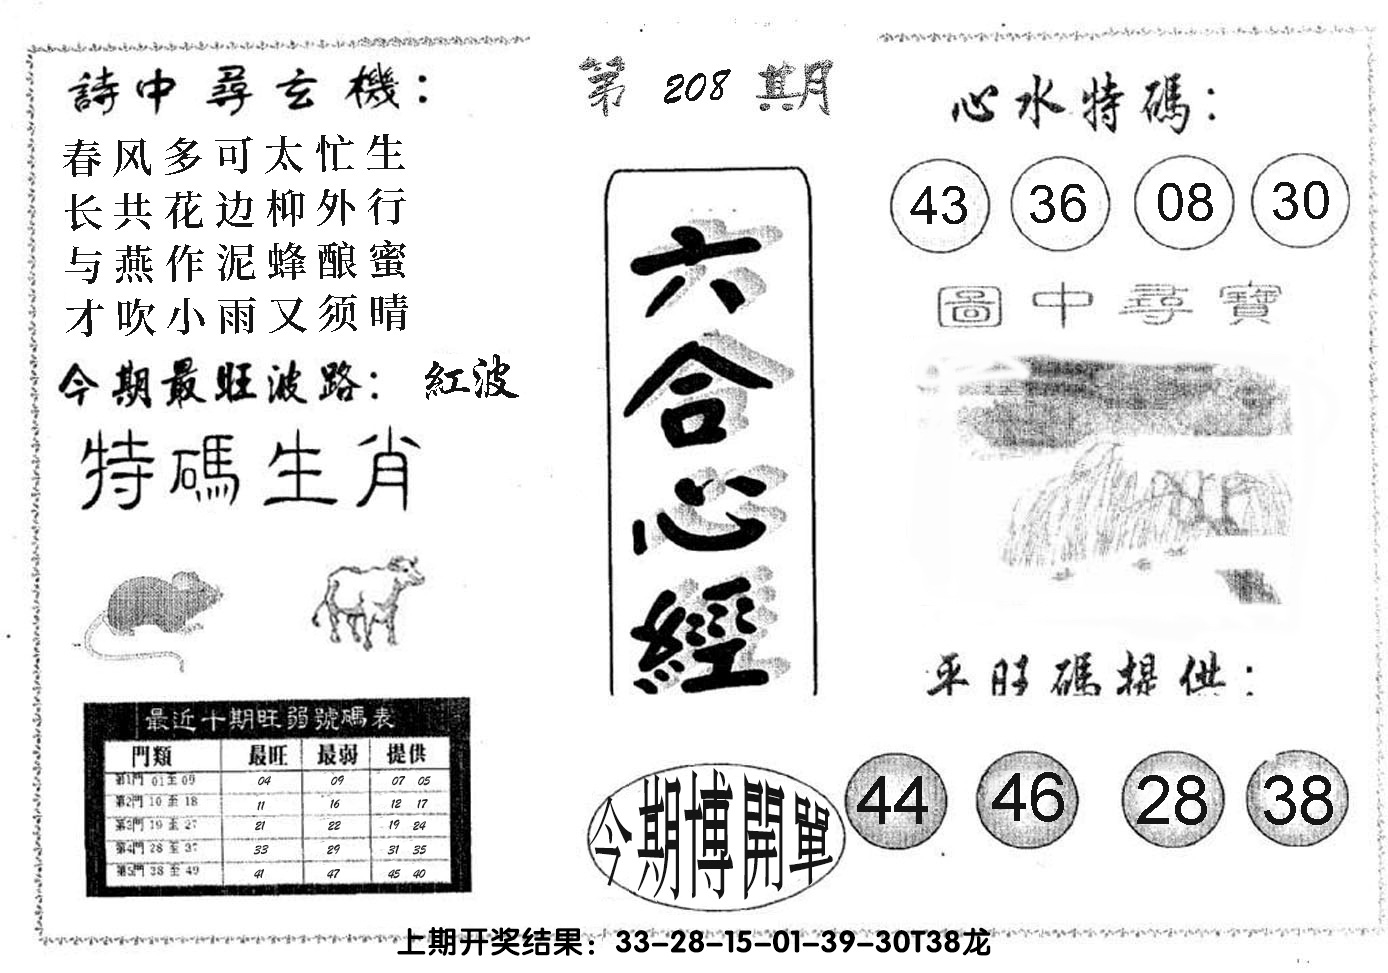 詩中尋玄機：
春风多可太忙生
长共花边柳外行
与燕作泥蜂酿蜜
才吹小雨又须晴
今期最旺波路：紅波
特碼生肖
最近十期旺弱號碼表
門類 最旺 最弱 提供
第1門 01至09 04 09 07 05
第2門 10至18 11 16 12 17
第3門 19至27 21 22 19 24
第4門 28至37 33 29 31 35
第5門 38至49 41 47 45 40
第208期
六合心經
今期博開單
心水特碼：
43 36 08 30
圖中尋寶
平旺碼提供：
44 46 28 38
上期开奖结果：33-28-15-01-39-30T38龙